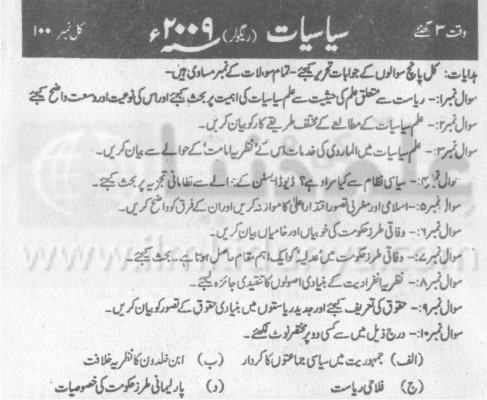 وقت ۳ گھنٹے سیاسیات (ریگولر) سنہ ۲۰۰۹ء کل نمبر ۱۰۰
ہدایات: کل پانچ سوالوں کے جوابات تحریر کیجئے - تمام سوالات کے نمبر مساوی ہیں-
سوال نمبر۱:- ریاست سے متعلق علم کی حیثیت سے علم سیاسیات کی اہمیت پر بحث کیجئے اور اس کی نوعیت اور وسعت واضح کیجئے
سوال نمبر۲:- علم سیاسیات کے مطالعے کے مختلف طریقے کار کو بیان کریں۔
سوال نمبر۳:- علم سیاسیات میں الماوردی کی خدمات اس کے "نظریہ امامت" کے حوالے سے بیان کریں۔
سوال نمبر۴:- سیاسی نظام سے کیا مراد ہے؟ ڈیوڈ ایسٹن کے حوالے سے نظاماتی تجزیہ پر بحث کیجئے۔
سوال نمبر۵:- اسلامی اور مغربی تصور اقتدار اعلیٰ کا موازنہ کریں اور ان کے فرق کو واضح کریں۔
سوال نمبر۶:- وفاقی طرز حکومت کی خوبیاں اور خامیاں بیان کریں۔
سوال نمبر۷:- وفاقی طرز حکومت میں "عدلیہ" کو ایک اہم مقام حاصل ہوتا ہے۔ بحث کیجئے۔
سوال نمبر۸:- نظریہ انفرادیت کے بنیادی اصولوں کا تنقیدی جائزہ لیجئے۔
سوال نمبر۹:- حقوق کی تعریف کیجئے اور جدید ریاستوں میں بنیادی حقوق کے تصور کو بیان کریں۔
سوال نمبر۱۰:- درج ذیل میں سے کسی دو پر مختصر نوٹ لکھئے۔
(الف) جمہوریت میں سیاسی جماعتوں کا کردار (ب) ابن خلدون کا نظریہ خلافت
(ج) فلاحی ریاست (د) پارلیمانی طرز حکومت کی خصوصیات